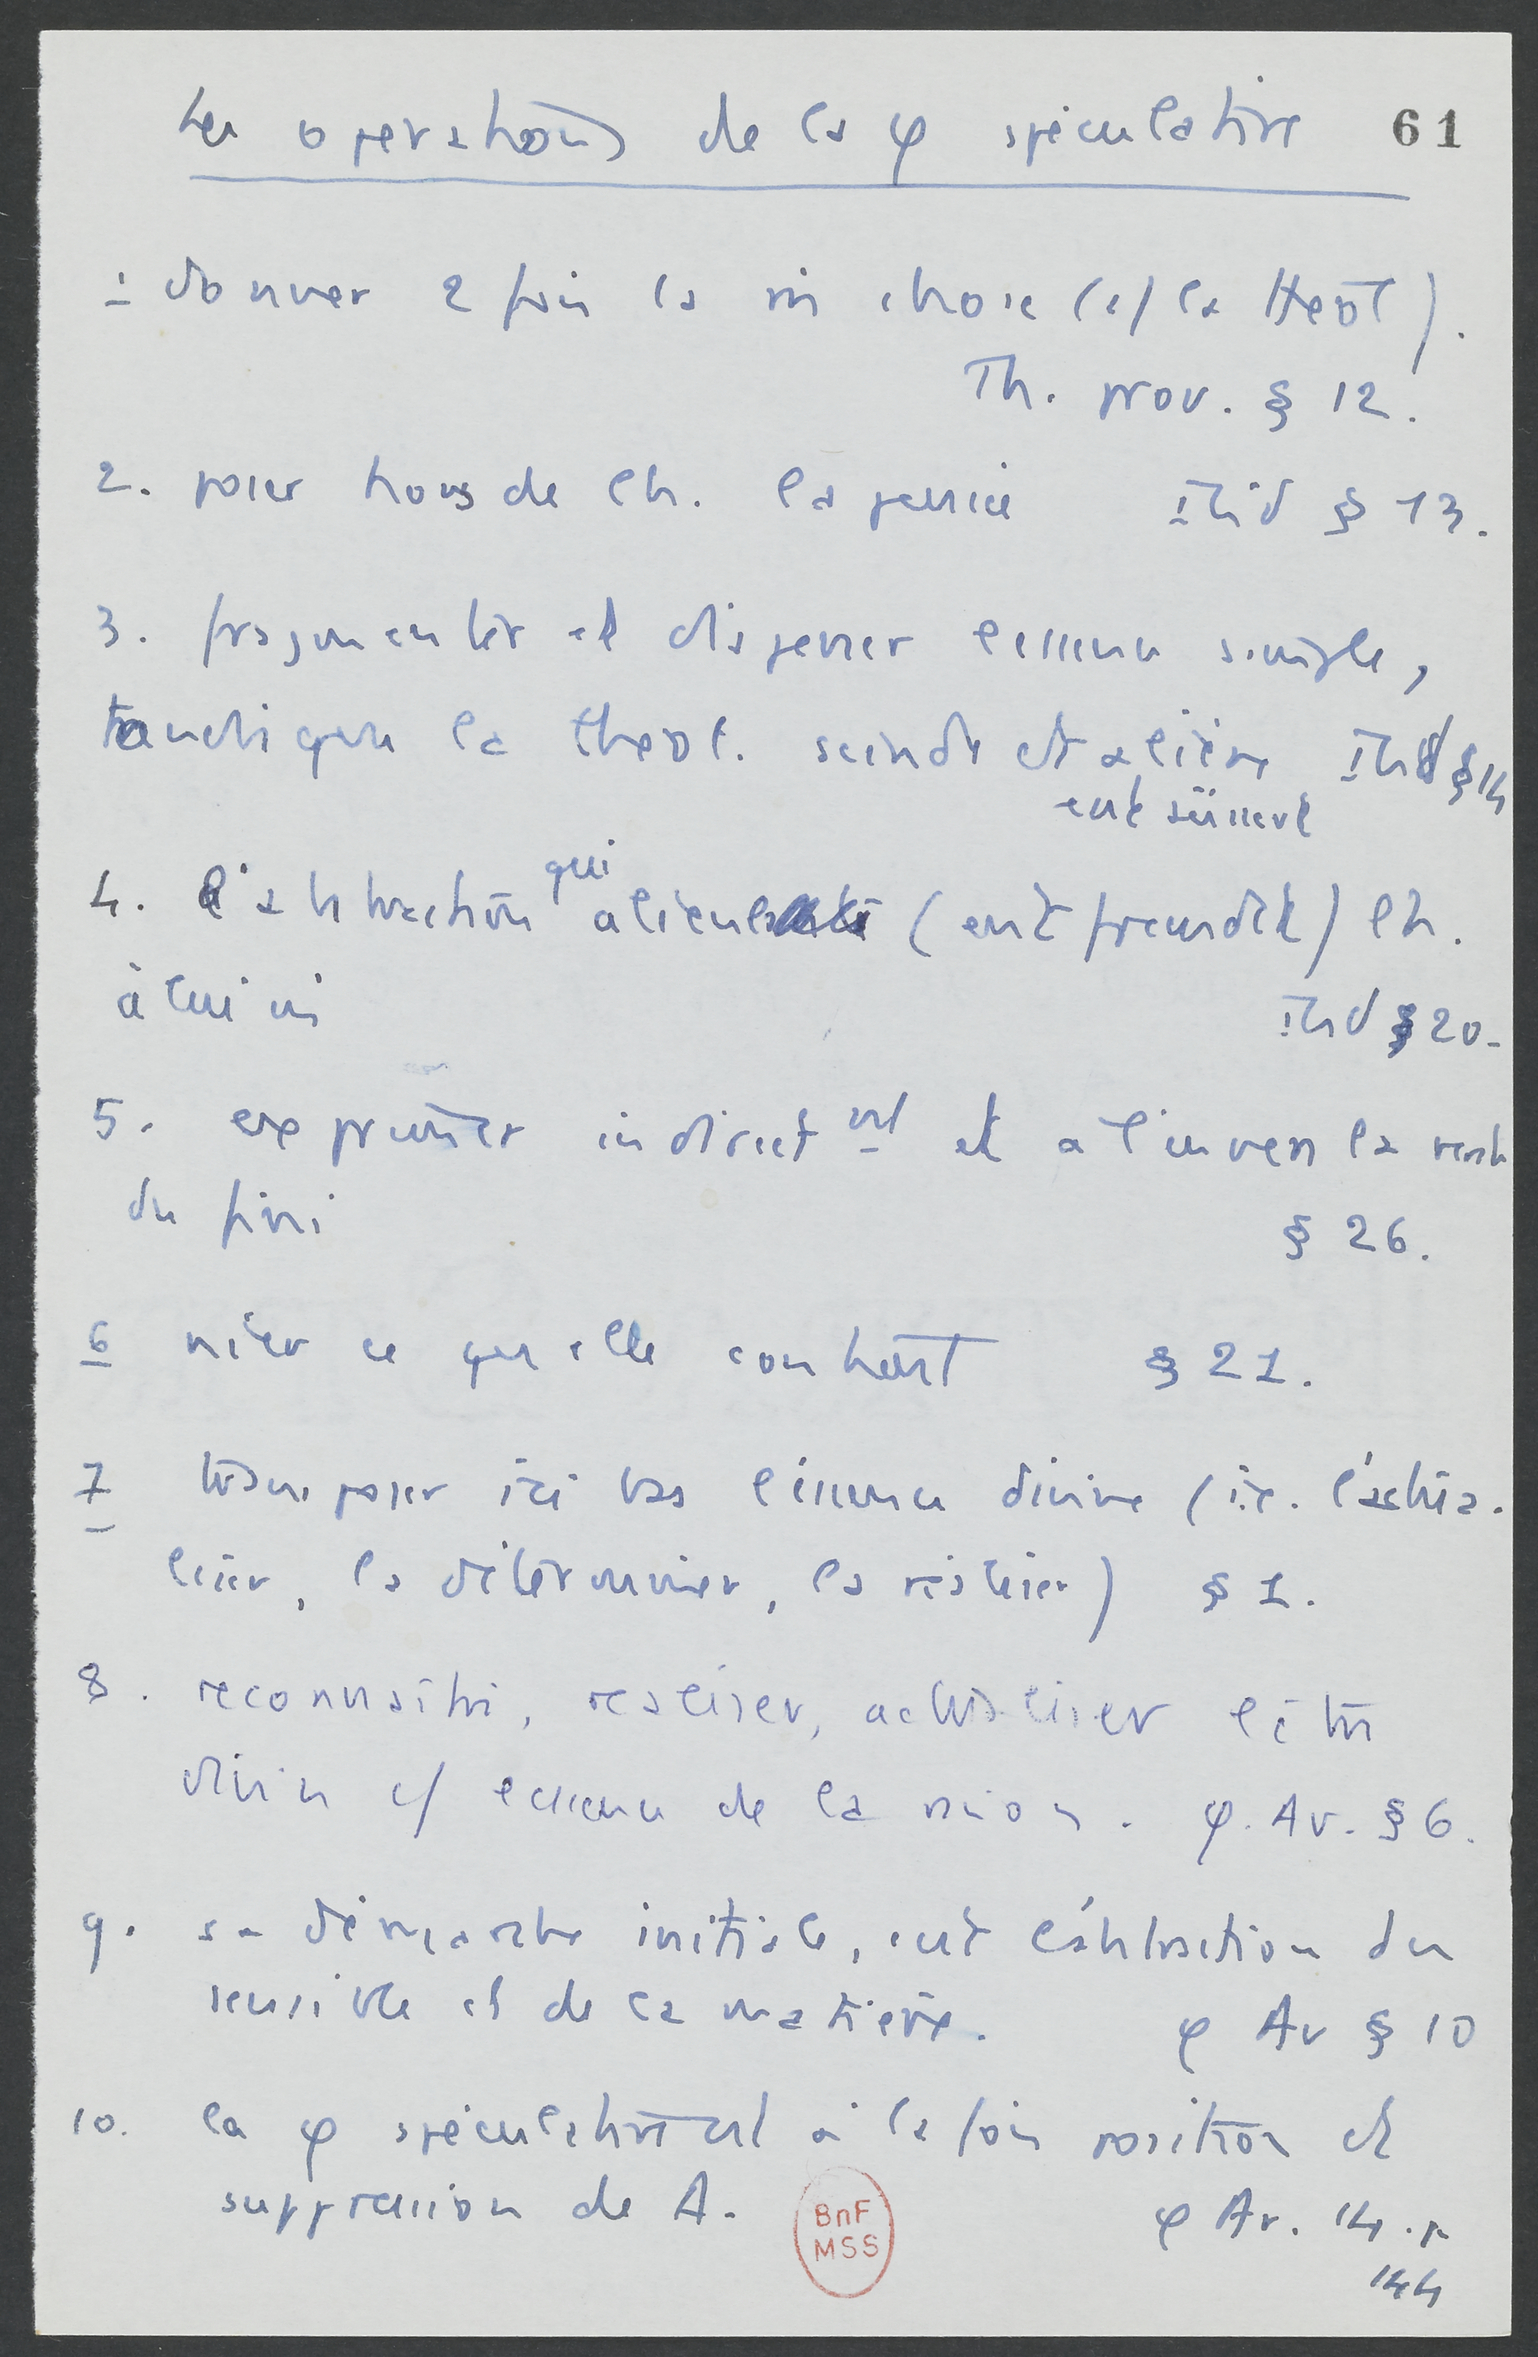 Les operations de la φ spéculative 61
1 donner 2 fois la m̂ chose (c/ la théol).
Th. prov. § 12.
2. poser hors de l'h. la pensée Ibid § 13.
3. fragmenter et disperser l'essence simple,
tandis que la théol. scinde et aliène Ibid § 14
entäussert
4. l'abstraction qui aliène (entfremdet) l'h.
à lui m̂ Ibid § 20.
5. exprimer indirect mt et à l'envers la verité
du fini § 26.
6 nier ce qu'elle contient § 21.
7 transposer ici bas l'essence divine (i.e. l'actua-
liser, la déterminer, la réaliser) § 1.
8. reconnaitre, realiser, actualiser l'être
divin c/ essence de la raison. φ. Av. § 6.
9. sa démarche initiale, c'est l'abstraction du
sensible et de la matière. φ Av § 10
10. la φ spéculative est à la fois position et
suppression de A. φ Av. 14. p
144
BnF
MSS